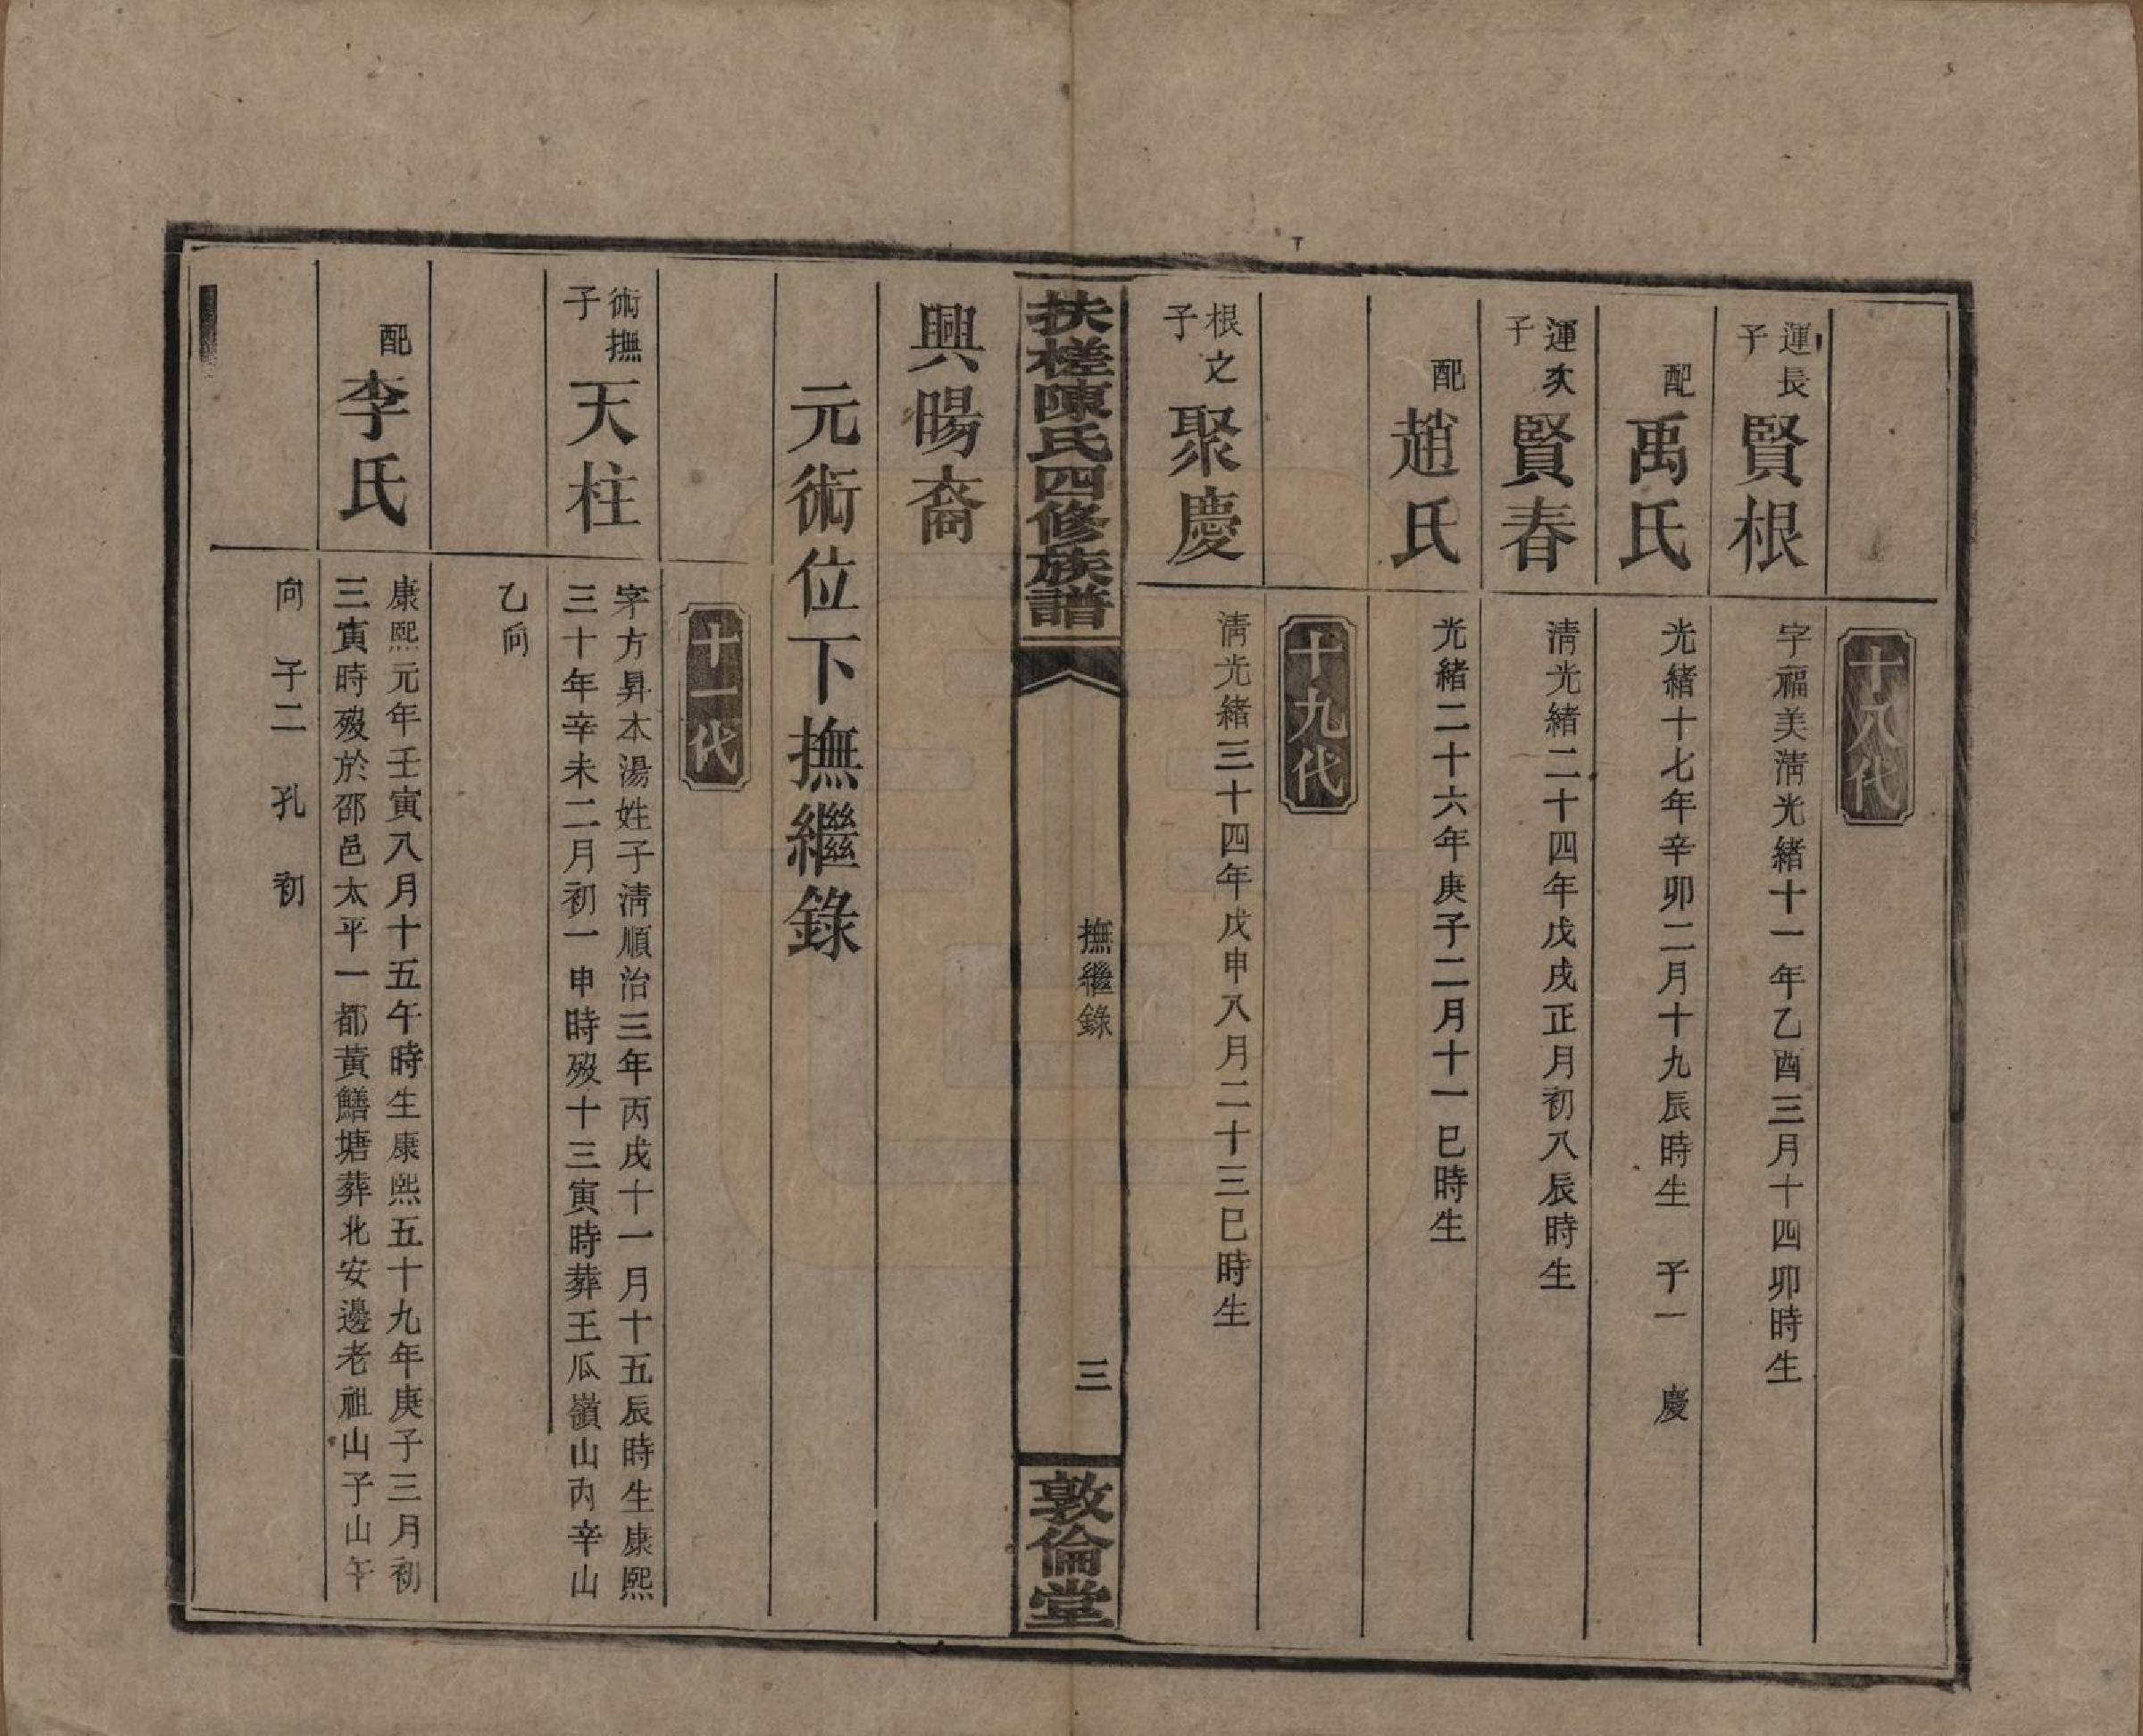 十八代
運長子 賢根 字福美淸光緒十一年乙酉三月十四卯時生
配 禹氏 光緒十七年辛卯二月十九辰時生 子一 慶
運次子 賢春 淸光緒二十四年戊戌正月初八辰時生
配 趙氏 光緒二十六年庚子二月十一巳時生
十九代
根之子 聚慶 淸光緒三十四年戊申八月二十三巳時生
扶槎陳氏四修族譜 撫繼錄 三 敦倫堂
興暘裔
元術位下撫繼錄
十一代
術撫子 天柱 字方昇本湯姓子淸順治三年丙戌十一月十五辰時生康熙
三十年辛未二月初一申時歿十三寅時葬王瓜嶺山內辛山
乙向
配 李氏 康熙元年壬寅八月十五午時生康熙五十九年庚子三月初
三寅時歿於邵邑太平一都黃鱔塘葬北安邊老祖山子山午
向 子二 孔 初